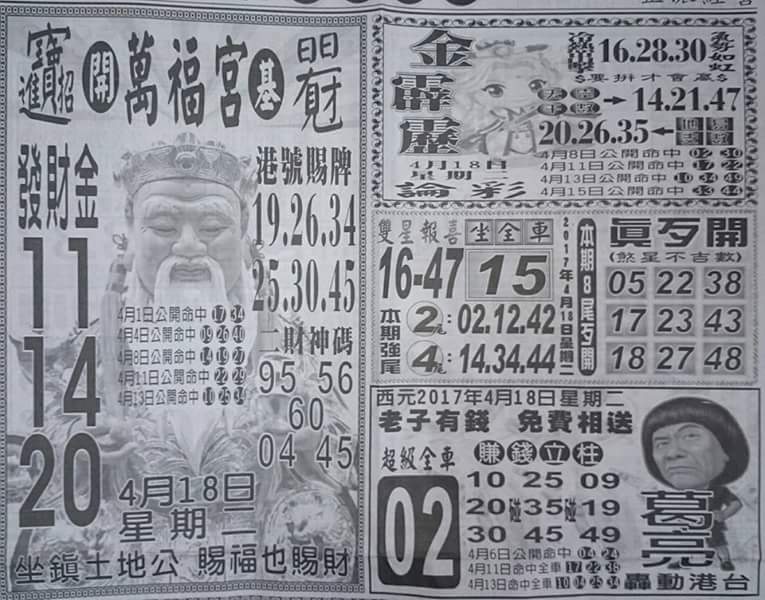 招
進寶
開
萬福宮
基
發財金
11
14
20
港號賜牌
19.26.34
25.30.45
二財神碼
95 56
60
04 45
4月1日公開命中 17 34
4月4日公開命中 09 26 40
4月8日公開命中 14 19 27
4月11日公開命中 22 29
4月13日公開命中 10 25 34
4月18日
星期二
坐鎮土地公 賜福也賜財
金霹靂
論彩
4月18日
星期二
16.28.30
勢如虹
$要拚才會贏$
14.21.47
20.26.35
4月8日公開命中 02 30
4月11日公開命中 17 22
4月13日公開命中 10 34 49
4月15日公開命中 43 44
雙星報喜
坐全車
16-47
15
本期強尾
2尾:02.12.42
4尾:14.34.44
2017年4月18日星期二
本期8尾歹開
眞歹開
(煞星不吉數)
05 22 38
17 23 43
18 27 48
西元2017年4月18日星期二
老子有錢 免費相送
超級全車
02
賺錢立柱
10 25 09
20碰35碰19
30 45 49
4月6日公開命中 04 24
4月11日命中全車 17 22 38
4月13日命中全車 10 04 25 34
葛亮
轟動港台